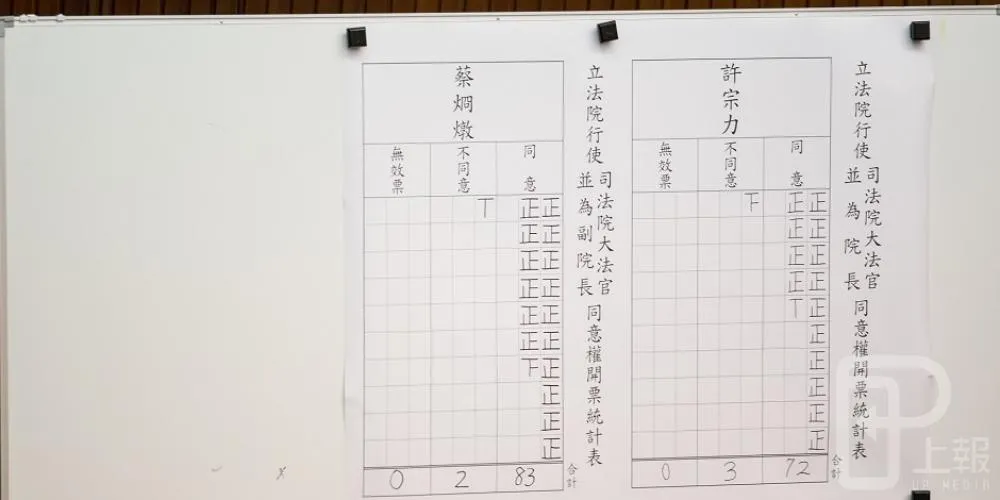 立法院行使
司法院大法官
並為院長
同意權開票統計表
許宗力
同意
不同意
無效票
正正正正正正正正正正
正正正正丅
下
合計
72
3
0
立法院行使
司法院大法官
並為副院長
同意權開票統計表
蔡烱燉
同意
不同意
無效票
正正正正正正正正正正
正正正正正正下
丅
合計
83
2
0
上報
UP MEDIA